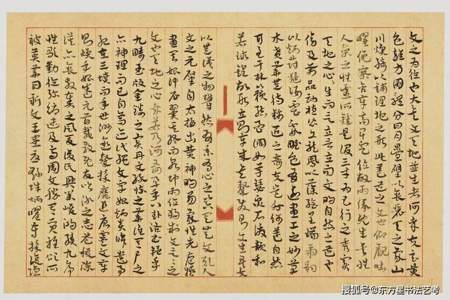 文之為德也大矣與天地並生者何哉夫玄黃
色雜方圓體分日月疊璧以垂麗天之象山
川煥綺以鋪理地之形此蓋道之文也仰觀吐
曜俯察含章高卑定位故兩儀既生矣惟
人參之性靈所鍾是謂三才為五行之秀實
天地之心心生而言立言立而文明自然之道也
傍及萬品動植皆文龍鳳以藻繪呈瑞虎豹
以炳蔚凝姿雲霞雕色有逾畫工之妙草
木賁華無待錦匠之奇夫豈外飾蓋自然耳
至於林籟結響調如竽瑟泉石激韻和
若球鍠故形立則章成矣聲發則文生矣夫
以無識之物鬱然有彩有心之器其無文歟人
文之元肇自太極幽贊神明易象惟先庖犧
畫其始仲尼翼其終而乾坤兩位獨制文言言
之文也天地之心哉若乃河圖孕乎八卦洛書韞乎
九疇玉版金鏤之實丹文綠牒之華誰其尸之
亦神理而已自鳥跡代繩文字始炳炎皞遺事
紀在三墳而年世渺邈聲采靡追唐虞文章
則煥乎始盛元首載歌既發吟詠之志益稷陳
謨亦垂敷奏之風夏后氏興業峻鴻績九序
惟歌勳德彌縟逮及商周文勝其質雅頌所
被英華日新文王患憂繇辭炳曜符采複隱
搜狐号@东方星书法艺考